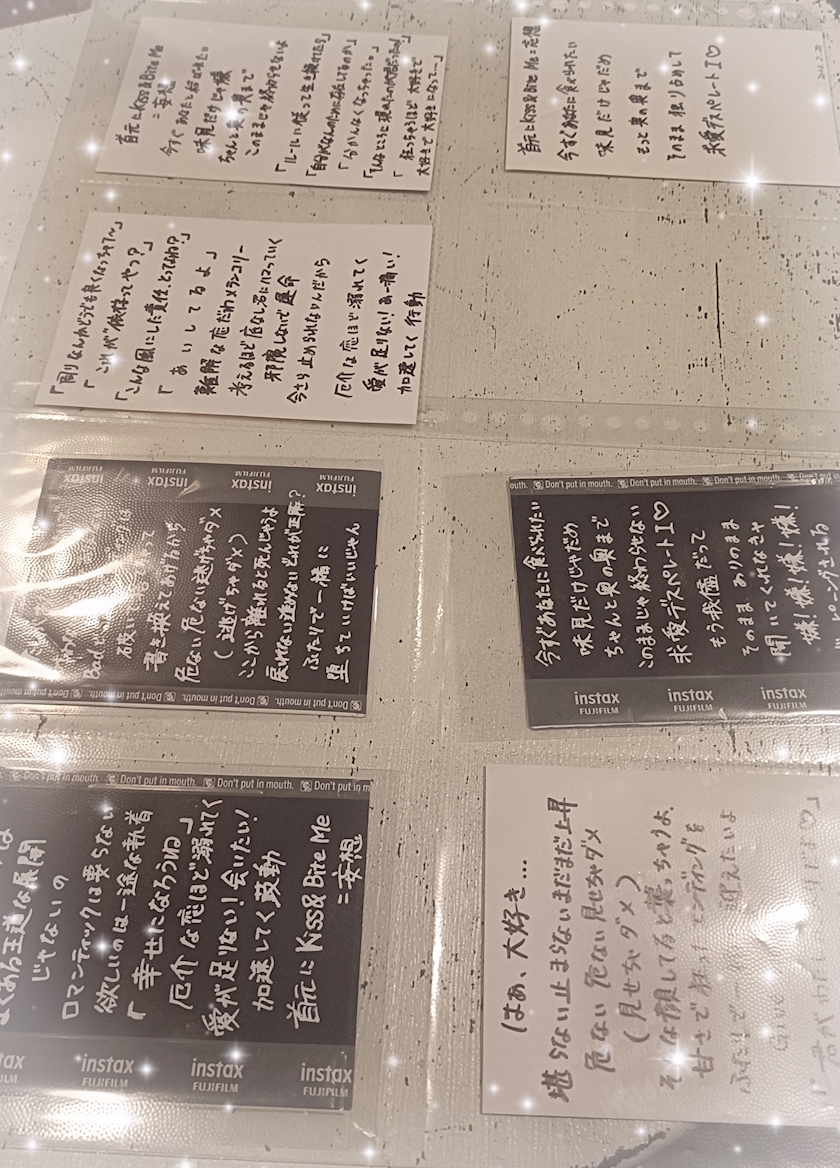 首元にKiss&Bite Me
=妄想
今すぐあなたと結ばれたい
味見だけじゃ嫌
ちゃんと奥の奥まで
このままじゃ終わらせないよ
「ルールに従って生き
「自分がなんのために存在してるのか」
「分かんなくなっちゃった。」
「そんなところに現れたのが君だったの」
「狂っちゃうほど大好きで
大好きで大好きになって…」
首元にKiss&Bite Me=妄想
今すぐあなたに食べられたい
味見だけじゃだめ
もっと奥の奥まで
そのまま独り占めして
求愛デスペレートI♡
「周りなんかどうでも良くなっちゃて〜」
「これが"依存ってやつ?」
「こんな風にした責任、とってよね?」
「あいしてるよ」
難解な恋だわメランコリー
考えるほど危なし君にハマっていく
邪魔しないで運命
今さら止められないんだから
厄介な恋ほど溺れてく
愛が足りない!あー痛い!
加速してく行動
instax
FUJIFILM
instax
FUJIFILM
instax
FUJIFILM
instax
FUJIFILM
Bad
破い
書き換えてあげるから
危ない危ない逃げちゃダメ
(逃げちゃダメ)
ここから離れると死んじゃうよ
戻れない逃れないどれが正解?
ふたりで一緒に
堕ちていけばいいじゃん
Don't put in mouth.
Don't put in mouth.
Don't put in mouth.
outh.
Don't put in mouth.
Don't put in mouth.
今すぐあなたに食べられたい
味見だけじゃだめ
ちゃんと奥の奥まで
このままじゃ終わらせない
求愛デスペレートI♡
もう我儘だって
そのままありのまま
聞いてくれなきゃ
嫌!嫌!嫌!嫌!
instax
FUJIFILM
instax
FUJIFILM
instax
FUJIFILM
Don't put in mouth.
Don't put in mouth.
Don't put in m
よくある王道な展開
じゃないの
ロマンティックは要らない
欲しいのは一途な執着
「幸せになろうね」
厄介な恋ほど溺れてく
愛が足りない!会いたい!
加速してく鼓動
首元にKiss&Bite Me
=妄想
instax
FUJIFILM
instax
FUJIFILM
instax
FUJIFILM
はぁ、大好き…
堪らない止まらないまだまだ上昇
危ない危ない見せちゃダメ
(見せちゃダメ)
そんな顔してると襲っちゃうよ.
甘さで狂ったエンディングを
ふたりで迎えたいよ